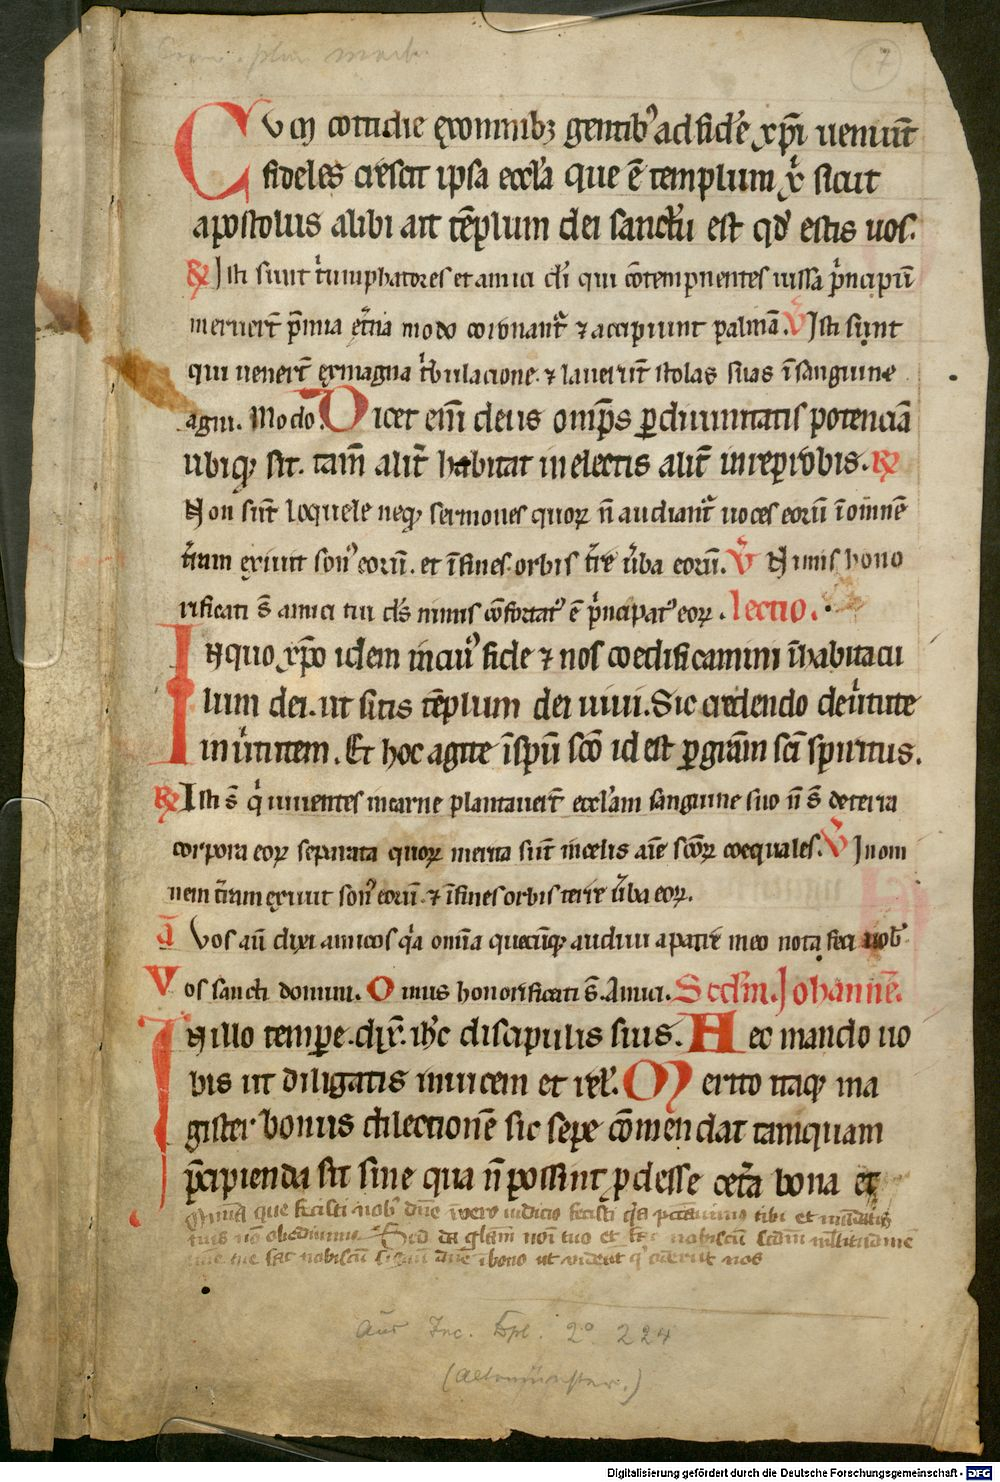 7
CVm cottidie ex omnibꝫ gentibꝰ ad fidē xp̄i ueniūt
fideles crescit ipsa eccl̄a que ē templum xͥ sicut
apostolus alibi ait tēplum dei sanctū est qd̄ estis uos.
℟ Isti sunt tͥumphatores et amici di qui cōtempnentes iussa pͥncipū
meruerūt p̄mia et̄na modo coronantᷣ ⁊ accipiunt palmā. ℣ Isti sunt
qui uenerūt ex magna tͥbulacione. ⁊ lauerūt stolas suas ī sanguine
agni. Modo. Dicet enī deus omp̄s ꝑ diuinitatis potenciā
ubiqꝫ sit. tam̄ alit̄ habitat in electis alit̄ in reprobis. ℟
Non sūt loquele neqꝫ sermones quoꝝ n̄ audiantᷣ uoces eorū ī omnē
t̄ram exiuit sonꝰ eorū. et ī fines orbis t̄re ūba eorū. ℣ Nimis hono
rificati s̄ amici tui ds̄ nimis cōfortatꝰ ē pͥncipatꝰ eoꝝ. lectio.
In quo xp̄o idem in cuiꝰ fide ⁊ nos coedificamini ī habitacu
lum dei. ut sitis tēplum dei uiui. Sic credendo de ūtute
in ūtutem. Et hoc agite ī spū sc̄o id est ꝑ gr̄am sc̄i spiritus.
℟ Isti s̄ qͥ uiuentes in carne plantauerūt eccl̄am sanguine suo n̄ s̄ de terra
corpora eoꝝ separata quoꝝ merita sūt in celis aīe sc̄oꝝ coequales. ℣ In om
nem t̄ram exiuit sonꝰ eorū. ⁊ ī fines orbis terre ūba eoꝝ.
ā Vos aū dixi amicos qͥa omīa quecūqꝫ audiui a patre meo nota feci uobꝭ
Vos sancti domini. Omus honorificati s̄. Amici. Scd̄m. Johannē.
In illo tempe. dix̄. ih̄c discipulis suis. Hec mando uo
bis ut diligatis inuicem et rel̄. Merito itaqꝫ ma
gister bonus dilectionē sic sepe cōmendat tamquam
p̄cipienda sit sine qua n̄ possint ꝓdesse cet̄a bona et
Omīa que fecisti nobꝭ dn̄e uero iudicio fecisti qͥa peccauimus tibi et mādatis
tuis nō obediuimus Sed da gl̄am noī tuo et fac nobiscū scd̄m ml̄titudinē
fac nobiscū signū dn̄e ī bono ut uideāt qͥ oderūt nos
Aus Inc. Ppl. 2° 224
(Altomünster.)
Digitalisierung gefördert durch die Deutsche Forschungsgemeinschaft - DFG